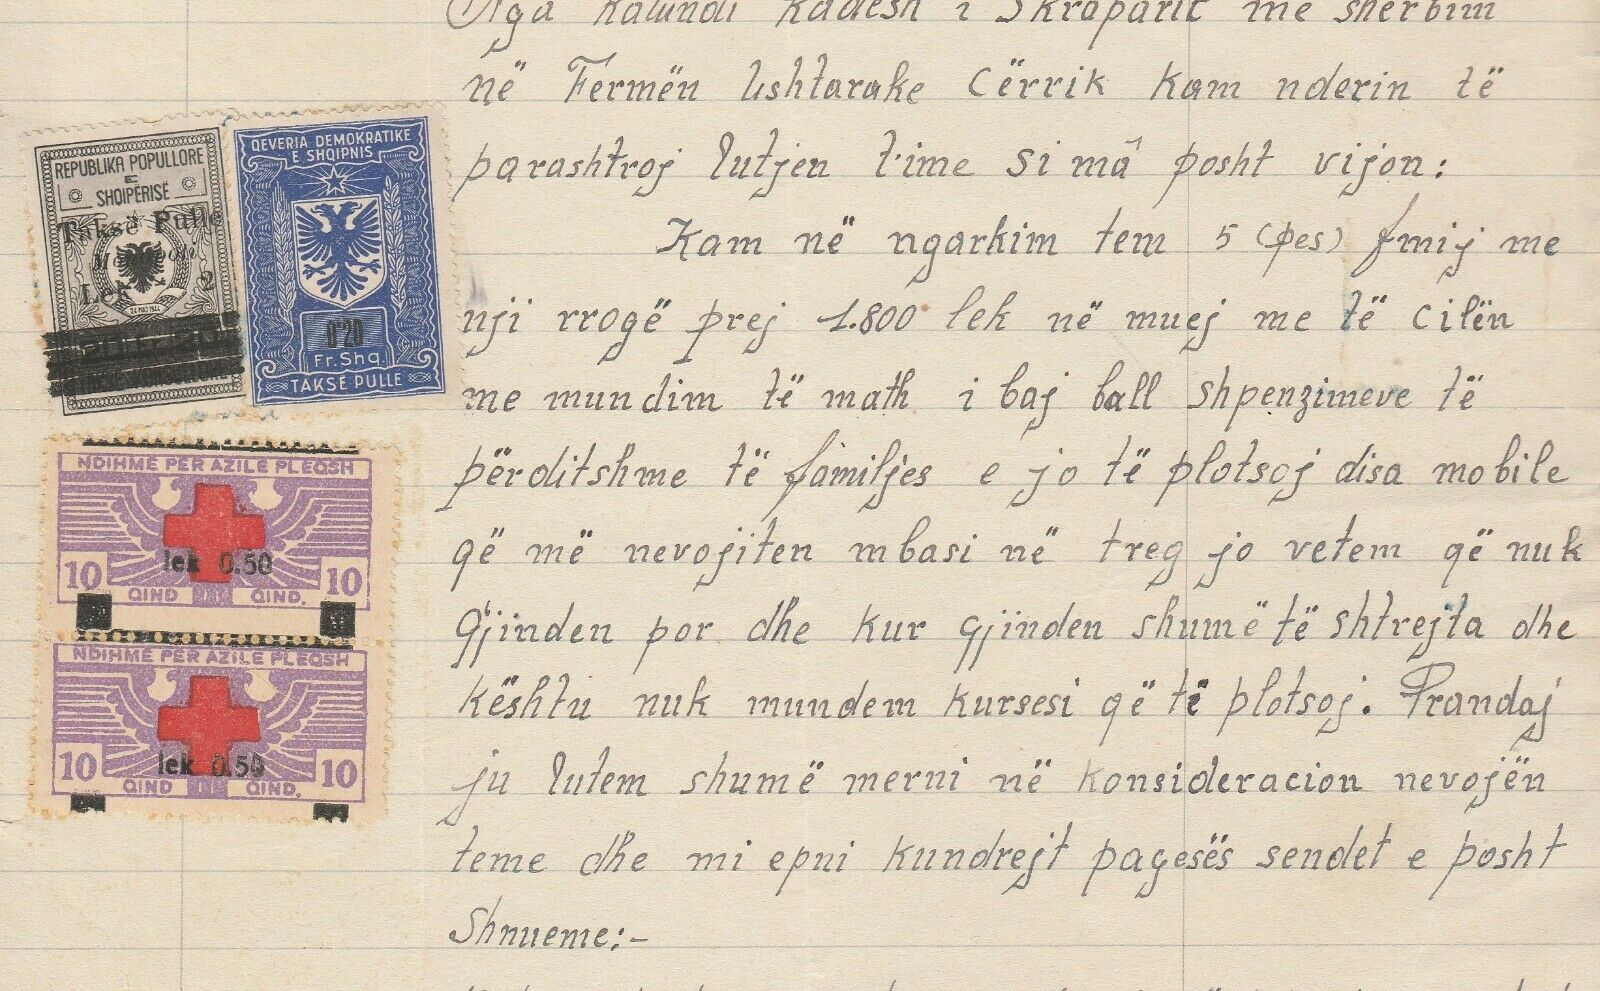 Nga katundi Kadesh i Skraparit me sherbim
në Fermën Ushtarake Cërrik Kam nderin të
parashtroj lutjen t'ime si mâ posht vijon:
Kam në ngarkim tem 5 (pes) fmij me
nji rrogë prej 1.800 lek në muej me të cilën
me mundim të math i baj ball shpenzimeve të
përditshme të familjes e jo të plotsoj disa mobile
që më nevojiten mbasi në treg jo vetem që nuk
Gjinden por dhe kur gjinden shumë të shtrejta dhe
kështu nuk mundem kursesi që të plotsoj. Prandaj
ju lutem shumë merni në konsideracion nevojën
teme dhe mi epni kundrejt pagesës sendet e posht
Shnueme:-
REPUBLIKA POPULLORE
E
SHQIPËRISË
Taksë Pulle
Lek 2
24 MAJ 1944
QEVERIA DEMOKRATIKE
E SHQIPNIS
0'20
Fr. Shq.
TAKSË PULLE
NDIHMË PËR AZILE PLEQSH
lek 0.50
10 10
QIND QIND.
NDIHMË PËR AZILE PLEQSH
lek 0.50
10 10
QIND QIND.